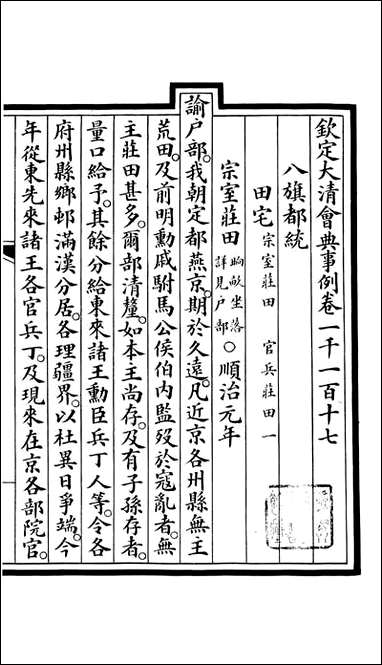 欽定大清會典事例卷一千一百十七
八旗都統
田宅 宗室莊田 官兵莊田一
宗室莊田 晌畝坐落詳見戶部 ○順治元年
諭戶部。我朝定都燕京。期於久遠。凡近京各州縣無主
荒田。及前明勳戚駙馬公侯伯內監歿於寇亂者。無
主莊田甚多。爾部清釐。如本主尚存。及有子孫存者。
量口給予。其餘分給東來諸王勳臣兵丁人等。令各
府州縣鄉邨滿漢分居。各理疆界。以杜異日爭端。今
年從東先來諸王各官兵丁。及現來在京各部院官。